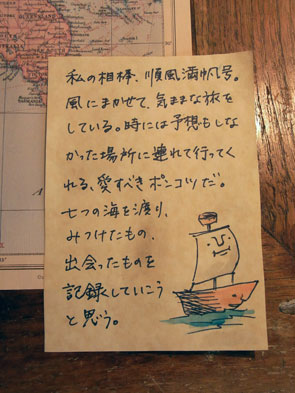 私の相棒、順風満帆号。
風にまかせて、気ままな旅を
している。時には予想もしな
かった場所に連れて行ってく
れる、愛すべきポンコツだ。
七つの海を渡り、
みつけたもの、
出会ったものを
記録していこう
と思う。